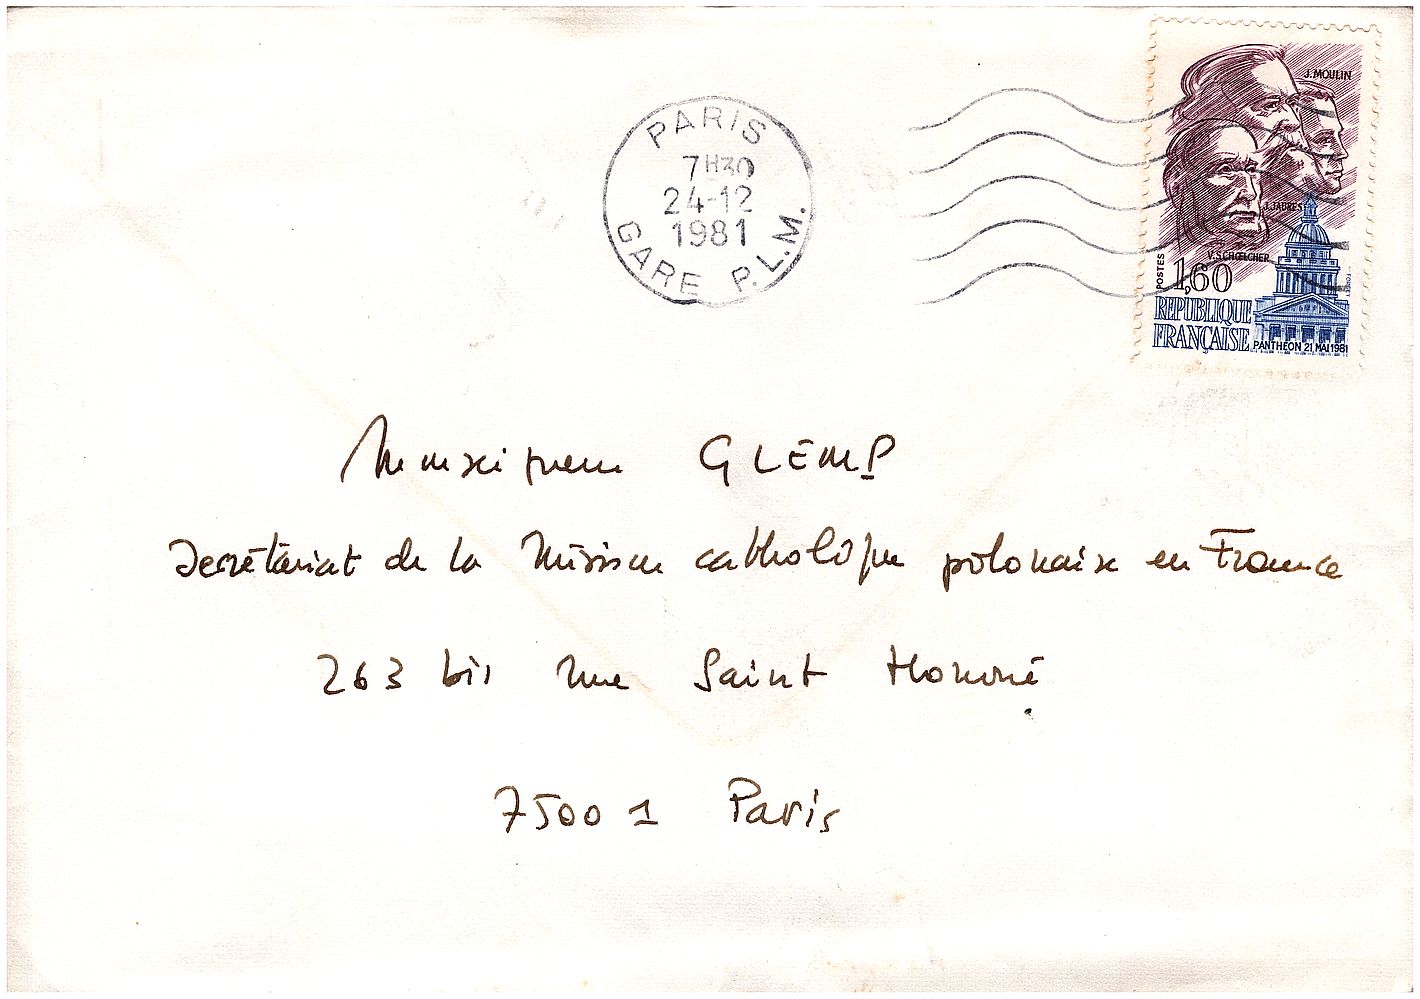 PARIS
7H30
24-12
1981
GARE P.L.M.
J.MOULIN
J.JAURES
V.SCHŒLCHER
POSTES
1,60
REPUBLIQUE
FRANÇAISE
PANTHEON 21 MAI 1981
Monseigneur GLEMP
Secrétariat de la Mission catholique polonaise en France
263 bis rue Saint Honoré
75001 Paris